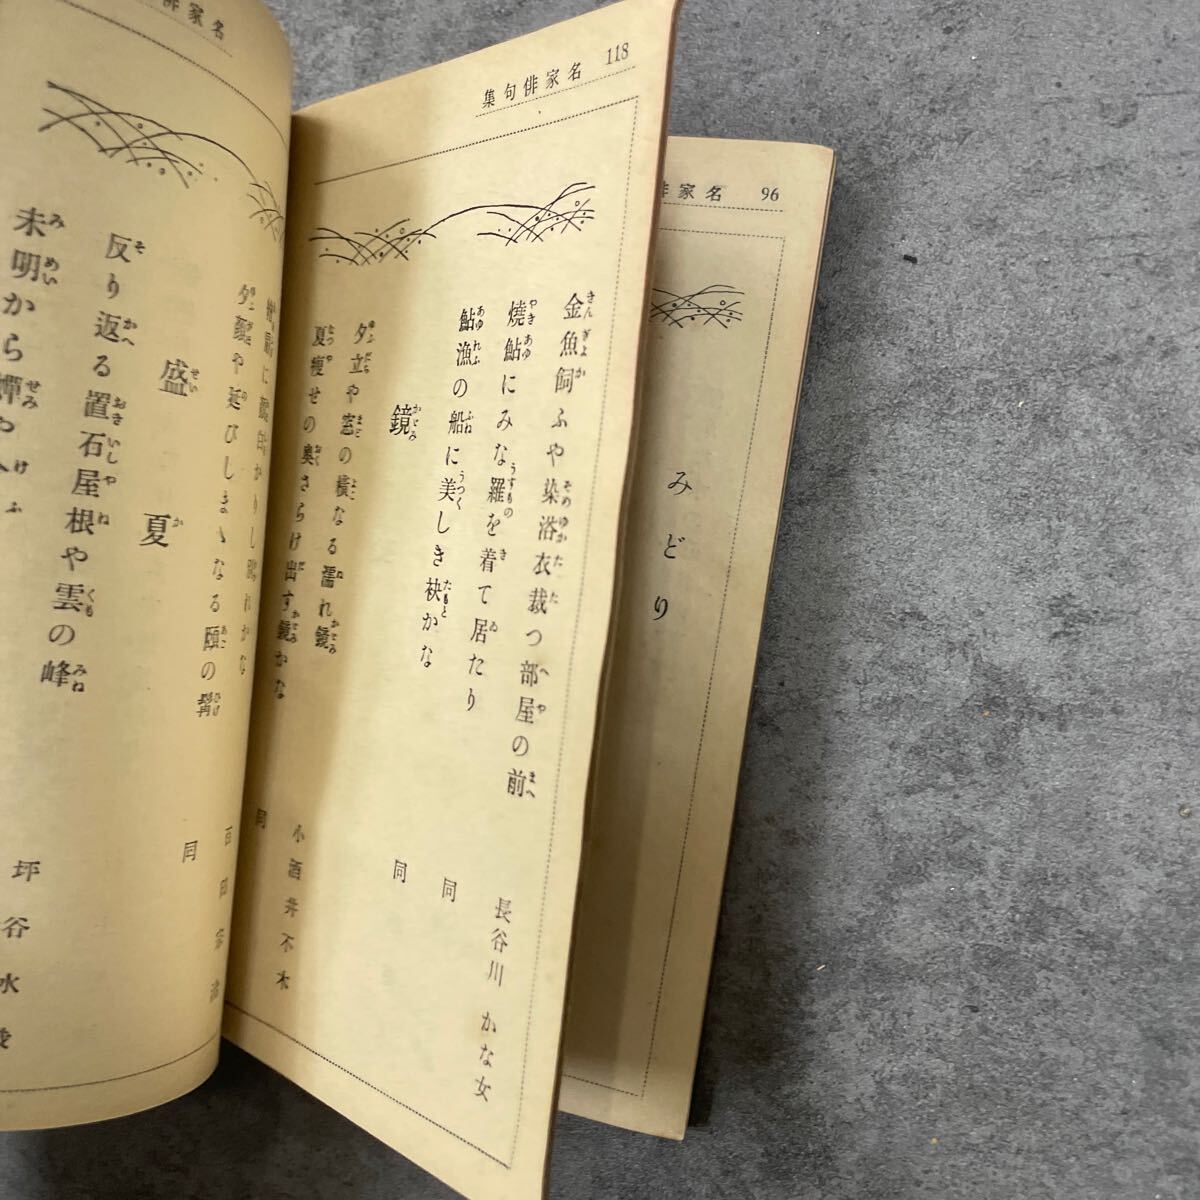 名家俳句集 118
金魚飼ふや染浴衣裁つ部屋の前
長谷川かな女
燒鮎にみな羅を着て居たり
同
鮎漁の船に美しき袂かな
同
鏡
夕立や窓の橫なる濡れ鏡
小酒井不木
夏瘦せの奧さらけ出す鏡かな
同
夕顏や延びしまゝなる頤の髯
同
盛夏
反り返る置石屋根や雲の峰
坪谷水
未明から蟬や
名家 96
みどり